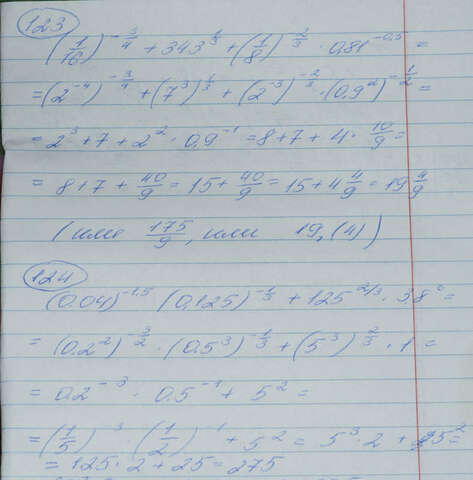 123
(1/16)^(-3/4) + 343^(1/3) + (1/8)^(-2/3) · 0,81^(-0,5) =
= (2^(-4))^(-3/4) + (7^3)^(1/3) + (2^(-3))^(-2/3) · (0,9^2)^(-1/2) =
= 2^3 + 7 + 2^2 · 0,9^(-1) = 8 + 7 + 4 · 10/9 =
= 8 + 7 + 40/9 = 15 + 40/9 = 15 + 4 4/9 = 19 4/9
(или 175/9, или 19,(4))
124
(0,04)^(-1,5) · (0,125)^(-1/3) + 125^(2/3) · 38^0 =
= (0,2^2)^(-3/2) · (0,5^3)^(-1/3) + (5^3)^(2/3) · 1 =
= 0,2^(-3) · 0,5^(-1) + 5^2 =
= (1/5)^(-3) · (1/2)^(-1) + 5^2 = 5^3 · 2 + 5^2 =
= 125 · 2 + 25 = 275